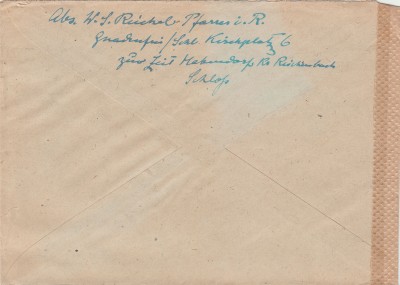 Abs. W. S. Reichel Pfarrer i. R.
Gnadenfrei/Schl. Kirchplatz 6
zur Zeit Habendorf Kr Reichenbach
Schloß